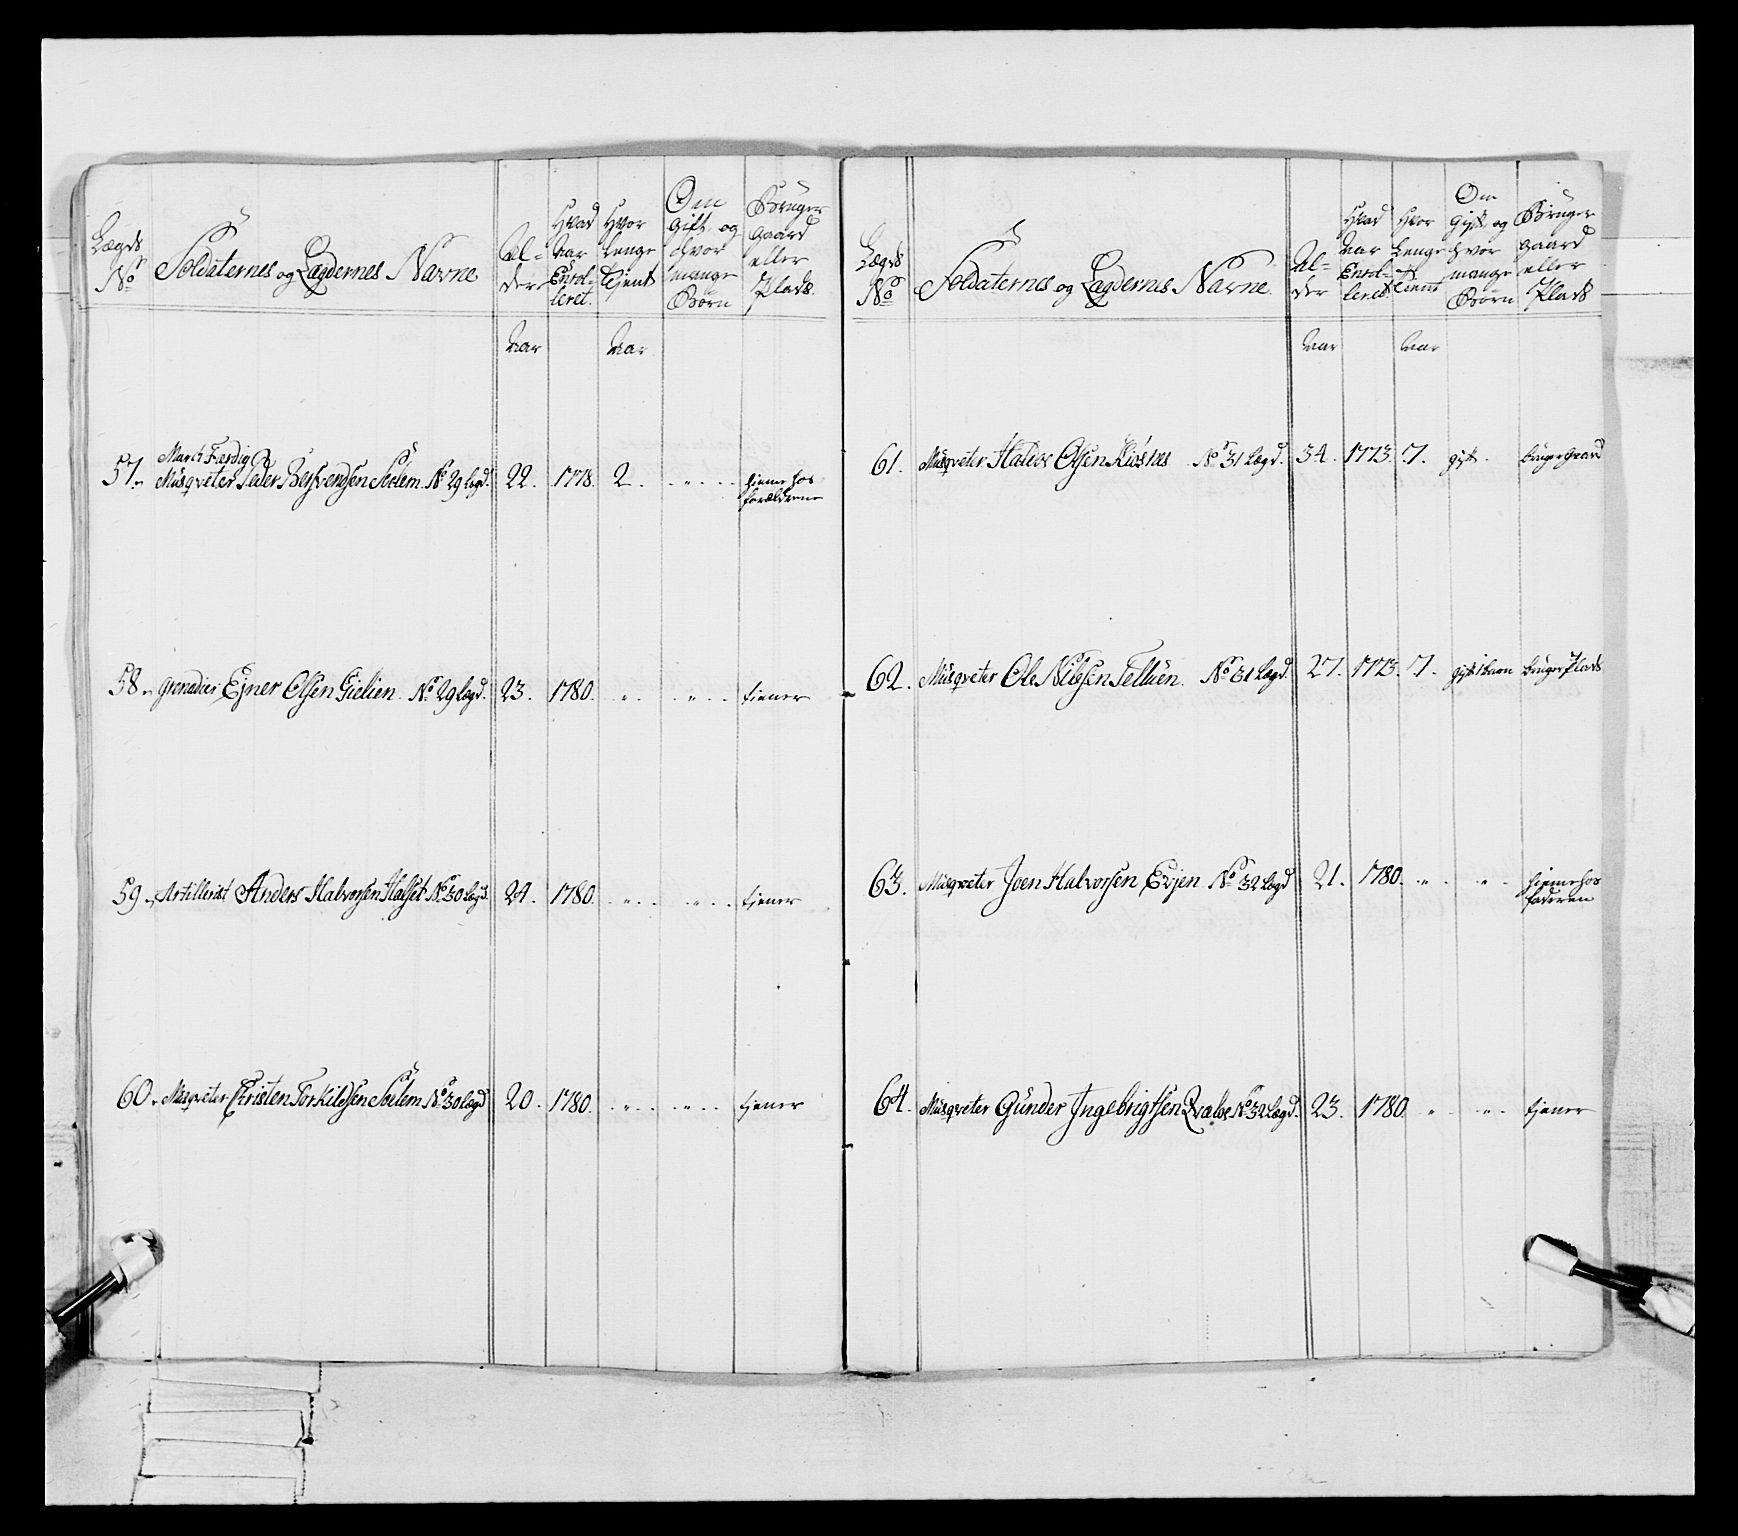 Lægds No
Soldaternes og Lægdernes Navne
Al-
der
Hvad
Aar
Enrol-
leret.
Hvor
Lenge
Tjent
Om
Gift og
hvor
mange
Børn
Bruger
Gaard
eller
Plads.
Aar
Aar
March Færdig
57. Musqveter Peder Besvendsen Solem No 29 Lægd. 22. 1778. 2. " hiemme hos
forældrerne
58. Grenadier Ejner Olsen Gielien. No 29 Lægd. 23. 1780. " " tiener
59. Artillerist Anders Halvorsen Halset No 30 Lægd. 24. 1780. " " tjener
60. Musqveter Christen Torkildsen Solem No 30 Lægd 20. 1780. " " tjener
Lægds
No
Soldaternes og Lægdernes Navne.
Al-
der
Hvad
Aar
Enrol-
leret
Hvor
Lenge
tient
Om
Gift og
hvor
mange
Børn
Bruger
gaard
eller
Plads
Aar
Aar
61. Musqveter Halvor Olsen No 31 Lægd. 34. 1773. 7. gift. bruger Gaard
62. Musqveter Ole Nilssen Telluen. No 31 Lægd. 27. 1773. 7. gift 1 barn bruger Plads
63. Musqveter Joen Halvorsen Evjen No 32 Lægd 21. 1780. " " hiemme hos
faderen
64. Musqveter Gunder Ingebrigtsen Qvaloe No 32 Lægd. 23. 1780. " " tjener